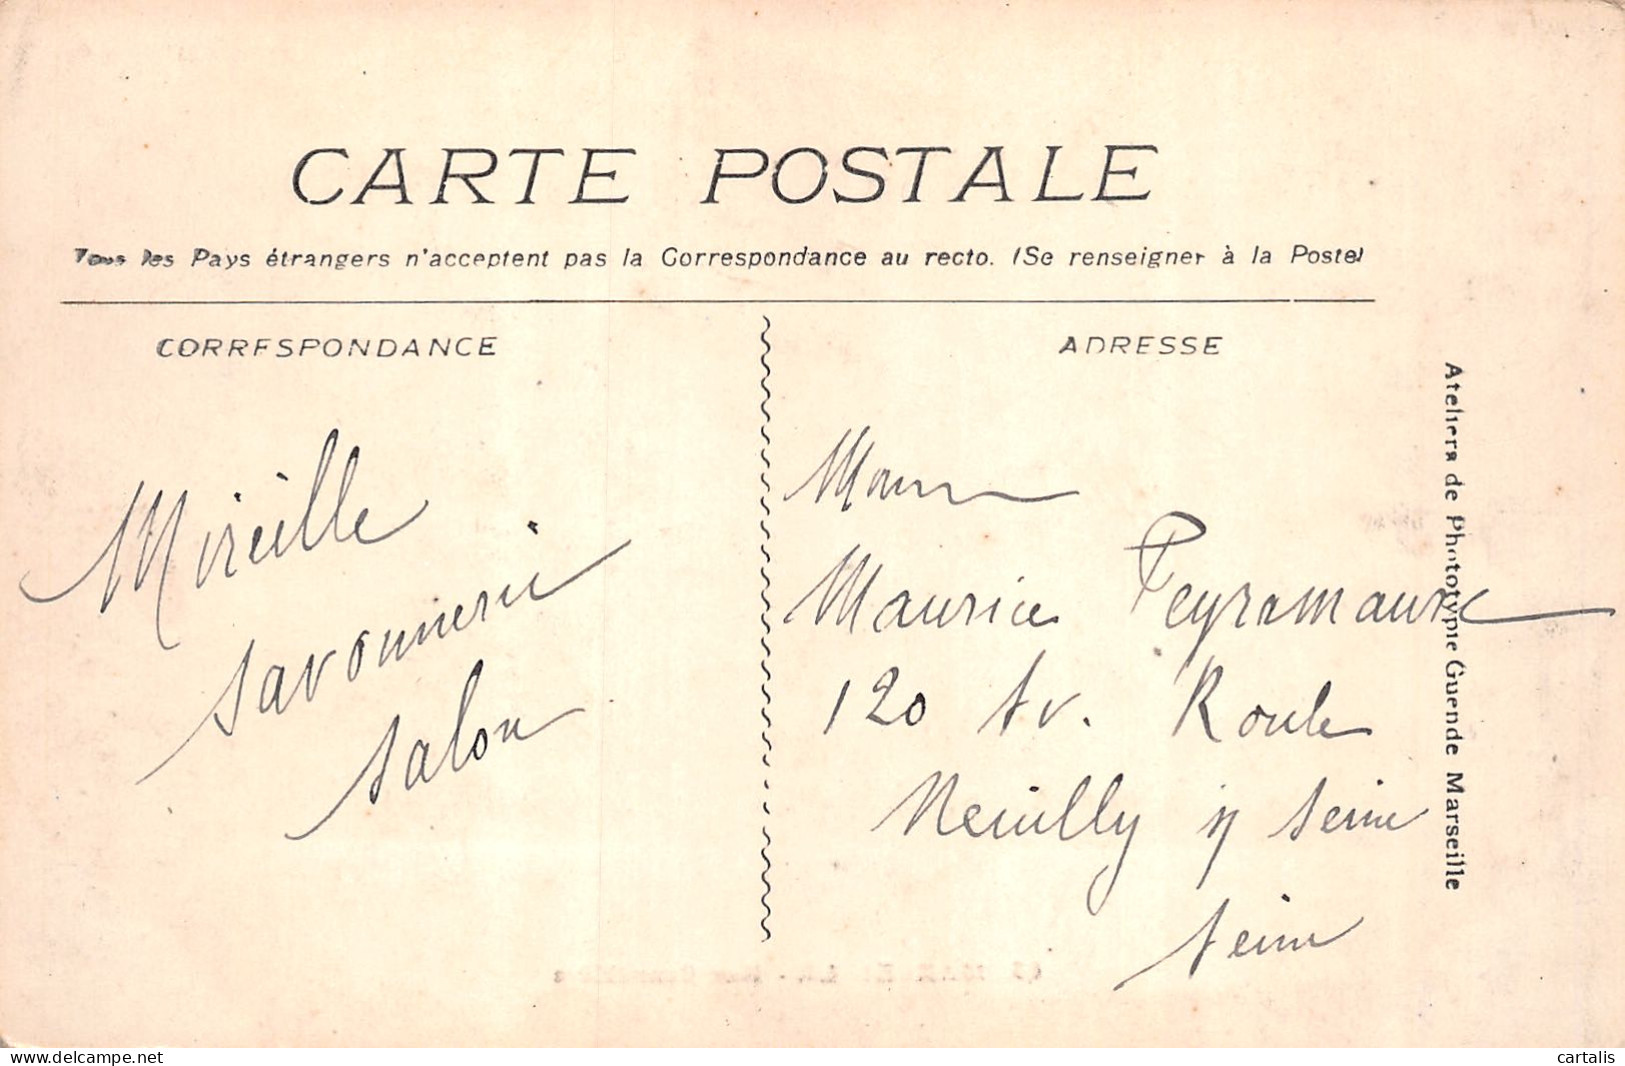 CARTE POSTALE
Tous les Pays étrangers n'acceptent pas la Correspondance au recto. (Se renseigner à la Poste)
CORRESPONDANCE
Mireille
Savonnerie
Salon
ADRESSE
Maurice Peyramaure
120 Av. Roule
Neuilly s/ Seine
Seine
Ateliers de Phototypie Guende Marseille
delcampe.net
cartalis